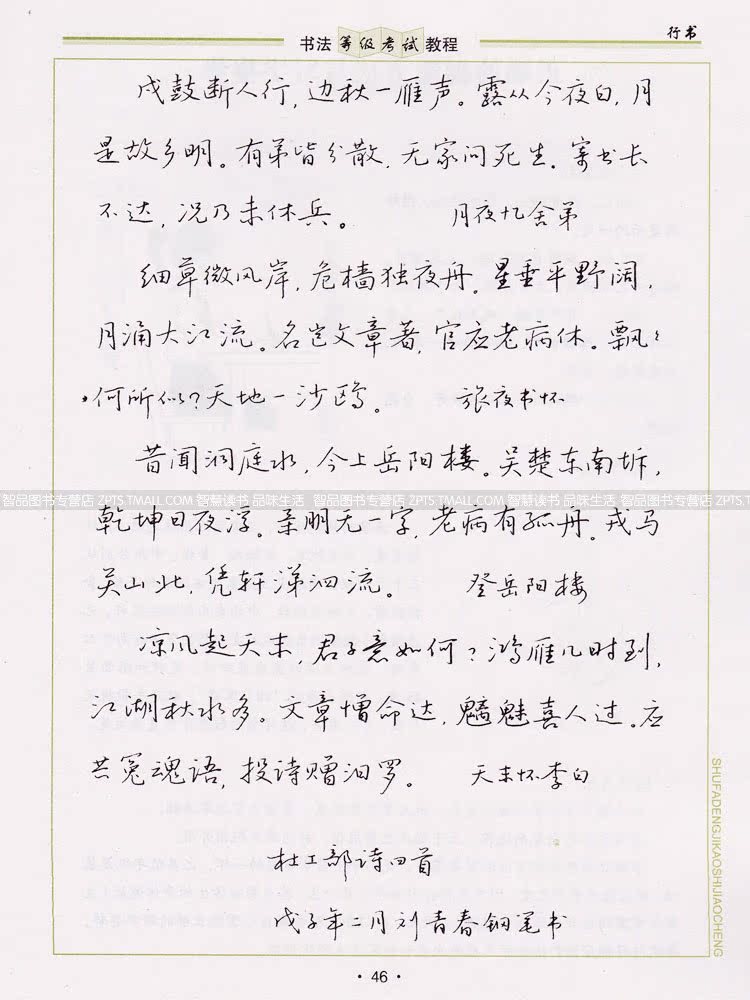 书法等级考试教程
行书
戍鼓断人行，边秋一雁声。露从今夜白，月
是故乡明。有弟皆分散，无家问死生。寄书长
不达，况乃未休兵。 月夜忆舍弟
细草微风岸，危樯独夜舟。星垂平野阔，
月涌大江流。名岂文章著，官应老病休。飘〻
何所似？天地一沙鸥。 旅夜书怀
昔闻洞庭水，今上岳阳楼。吴楚东南坼，
智品图书专营店 ZPTS.TMALL.COM 智慧读书 品味生活 智品图书专营店 ZPTS.TMALL.COM 智慧读书 品味生活 智品图书专营店 ZPTS.
乾坤日夜浮。亲朋无一字，老病有孤舟。戎马
关山北，凭轩涕泗流。 登岳阳楼
凉风起天末，君子意如何？鸿雁几时到，
江湖秋水多。文章憎命达，魑魅喜人过。应
共冤魂语，投诗赠汨罗。 天末怀李白
杜工部诗四首
戊子年二月刘青春钢笔书
SHUFADENGJIKAOSHIJIAOCHENG
·46·